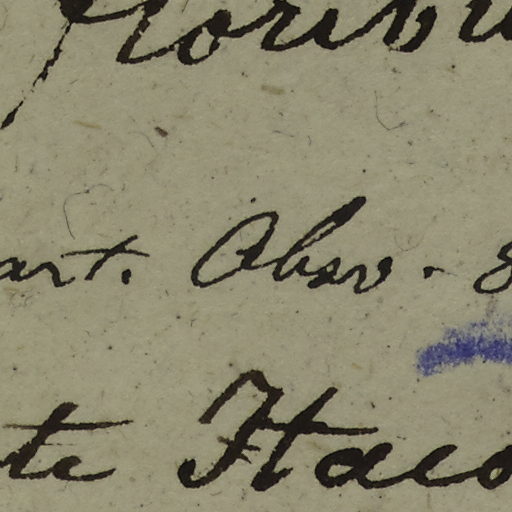 floribu
art. Obsv. 8
te Haeo